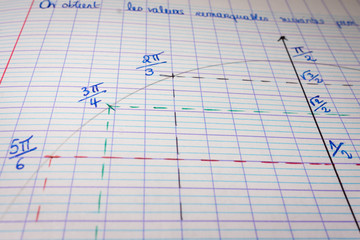 On obtient les valeurs remarquables suivantes pour
π/2
2π/3
√3/2
3π/4
√2/2
5π/6
1/2